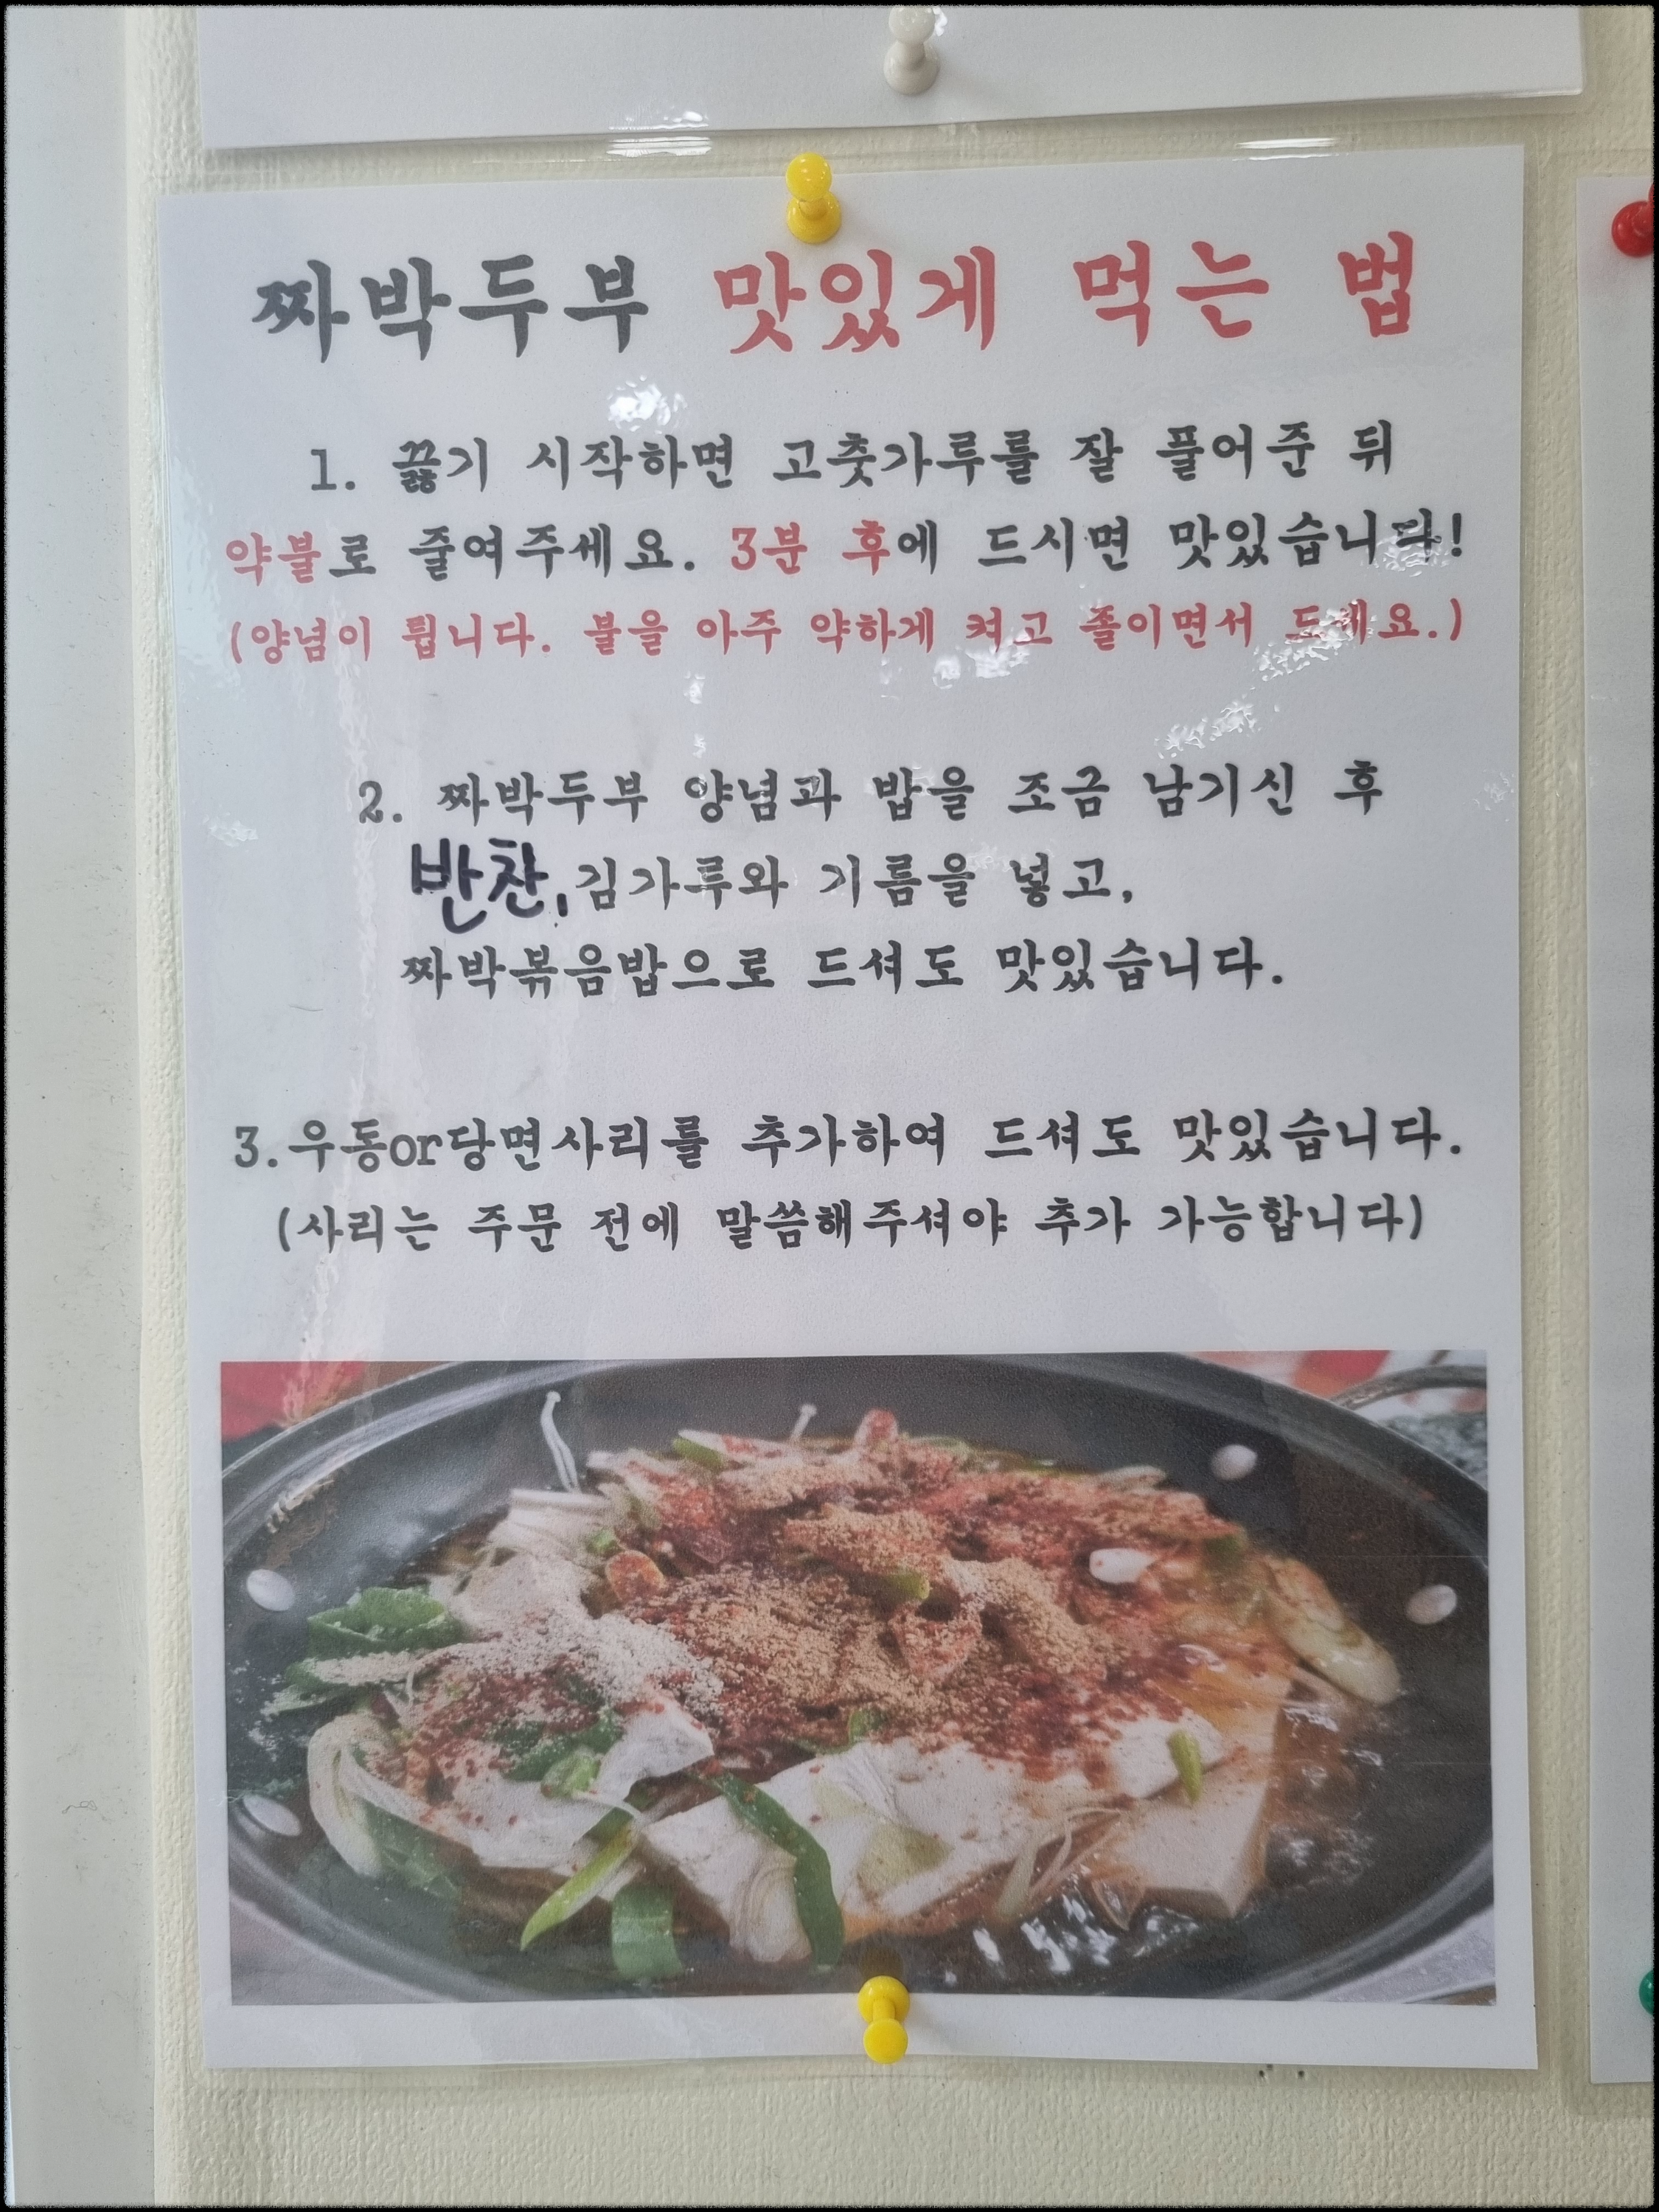 짜박두부 맛있게 먹는 법
1. 끓기 시작하면 고춧가루를 잘 풀어준 뒤
약불로 줄여주세요. 3분 후에 드시면 맛있습니다!
(양념이 튑니다. 불을 아주 약하게 켜고 졸이면서 드세요.)
2. 짜박두부 양념과 밥을 조금 남기신 후
반찬, 김가루와 기름을 넣고,
짜박볶음밥으로 드셔도 맛있습니다.
3.우동or당면사리를 추가하여 드셔도 맛있습니다.
(사리는 주문 전에 말씀해주셔야 추가 가능합니다)